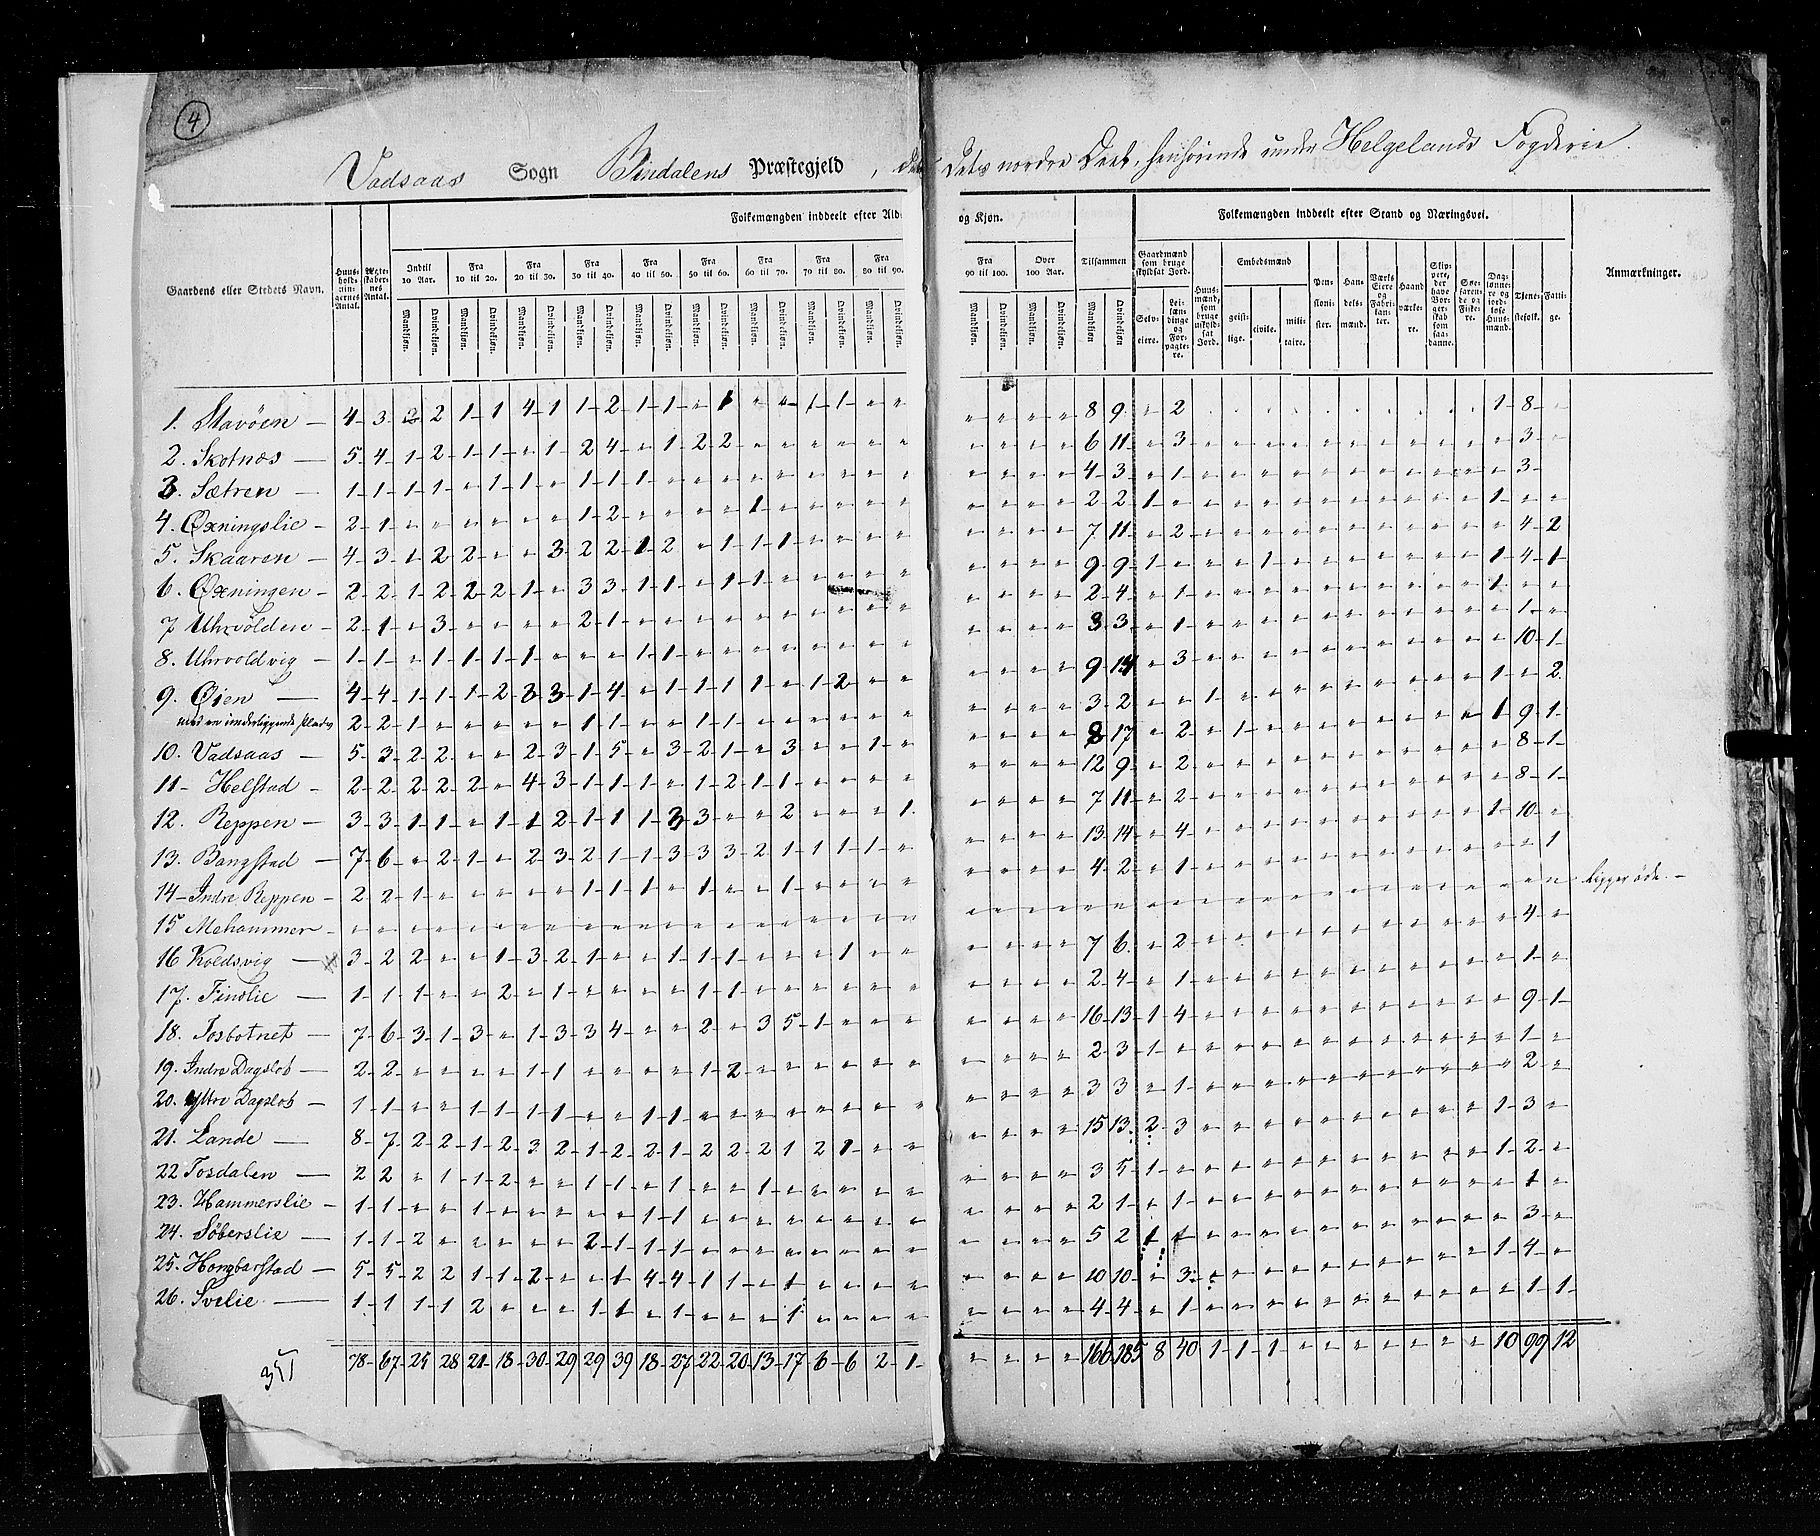 4
Vadsaas Sogn Bindalens Præstegjeld, dets nordre Deel, henhørende under Helgelands Fogderie.
Gaardens eller Stedets Navn. Huusholdningernes Antal. Ægteskabernes Antal. Folkemængden inddeelt efter Alder og Kjøn. Folkemængden inddeelt efter Stand og Næringsvei. Anmærkninger.
Indtil 10 Aar. Fra 10 til 20. Fra 20 til 30. Fra 30 til 40. Fra 40 til 50. Fra 50 til 60. Fra 60 til 70. Fra 70 til 80. Fra 80 til 90. Fra 90 til 100. Over 100 Aar. Tilsammen Gaardmænd som bruge skyldsat Jord. Huusmænd, som bruge uskyldsat Jord. Embedsmænd Pensionister. Handelsmænd. Værks Eiere og Fabrikanter. Haandværkere. Skippere, der have Borgerskab som saadanne. Søefarende og Fiskere. Daglønnere og jordløse Huusmænd. Tjenestefolk. Fattige.
Mandkjøn. Qvindekjøn. Selveiere. Leilændinge og Forpagtere. geistlige. civile. militaire.
1. Stavöen 4 3 2 2 1 1 4 1 1 2 1 1 " 1 " " 1 1 " " " " " " 8 9 " 2 1 8 "
2. Skotnæs 5 4 1 2 1 1 " 1 2 4 " 1 2 2 " " " " " " " " " " 6 11 " 3 " " " " " " " " " " " 3 "
3. Sætren 1 1 1 1 " 1 1 " 1 1 1 " " " " " " " " " " " " " 4 3 " 1 " " " " " " " " " " " 3
4. Øxningslie 2 1 " " " " " " 1 2 " " " " 1 " " " " " " " " " 2 2 1 " " " " " " " " " " " 1 " "
5. Skaaren 4 3 1 2 2 " " 3 2 2 1 2 " 1 1 1 " " " " " " " " 7 11 " 2 " " " " " " " " " " " 4 2
6. Øxningen 2 2 1 2 2 2 1 " 3 3 1 1 " 1 1 " " " " " " " " " 9 9 1 " " " 1 " " " " " " " 1 4 1
7 Uhrvölden 2 1 " 3 " " " " 2 1 " " " " " " " " " " " " " " 2 4 " 1 " " " " " " " " " " 1 " "
8. Uhrvoldvig 1 1 " 1 1 1 1 " " " 1 1 " " " " " " " " " " " " 3 3 " 1 " " " " " " " " " " " 1 "
9. Øien 4 4 1 1 1 2 3 3 1 4 " 1 1 1 1 " 1 2 " " " " " " 9 14 " 3 " " " " " " " " " " " 10 1
med en underliggende Plads 2 2 1 " " " " " 1 1 " " 1 1 " " " " " " " " " " 3 2 " " 1 " " " " " " " " " 1 " 2
10. Vadsaas 5 3 2 2 " " 2 3 1 5 " 3 2 1 " 3 " " 1 " " " " " 8 17 " 2 " 1 " " " " " " " " 1 9 1
11 Helstad 2 2 2 2 2 " 4 3 1 1 1 " 1 2 1 1 " " " " " " " " 12 9 " 2 " " " " " " " " " " " 8 1
12. Reppen 3 3 1 1 " 1 1 2 1 1 1 3 3 " " 2 " " " 1 " " " " 7 11 " 2 " " " " " " " " " " " 8 1
13. Bangstad 7 6 " 2 1 " 2 3 2 1 1 3 3 3 2 1 1 1 1 " " " " " 13 14 " 4 " " " " " " " " " " 1 10 "
14 Indre Reppen 2 2 1 " " " " " 1 1 1 " 1 " " 1 " " " " " " " " 4 2 " 1 " " " " " " " " " " " " 1
15 Mehammer " " " " " " " " " " " " " " " " " " " " " " " " " " " " " " " " " " " " " " " " " ligger öde.
16 Koldsvig 3 2 2 " " 1 3 2 1 " " 1 1 1 " " " 1 " " " " " " 7 6 " 2 " " " " " " " " " " " 4 "
17. Finslie 1 1 1 " " 2 " 1 " " " " 1 1 " " " " " " " " " " 2 4 " 1 " " " " " " " " " " " 1 "
18. Tosbotnet 7 6 3 1 3 " 1 3 3 4 " " 2 " 3 5 1 " " " " " " " 16 13 1 4 " " " " " " " " " " " 9 1
19. Indre Dagslot 2 2 " " " " 1 1 " " " " 1 2 " " " " " " " " " " 2 3 1 " " " " " " " " " " " " 1 "
20. Yttre Dagslot 1 1 " " 1 1 1 1 " " 1 1 " " " " " " " " " " " " 3 3 " 1 " " " " " " " " " " " 2 "
21. Lande 8 7 2 2 1 2 3 2 1 2 2 1 2 2 2 1 2 1 " " " " " " 15 13 2 3 " " " " " " " " " " 1 3 "
22 Tosdalen 2 2 " 1 1 2 " " 1 1 " 1 " " 1 " " " " " " " " " 3 5 1 " " " " " " " " " " " 1 2 "
23. Hammerslie 1 1 " " 1 " " " " " 1 1 " " " " " " " " " " " " 2 1 " 1 " " " " " " " " " " " 1 "
24. Söberslie 1 1 2 " " " " " 2 1 1 1 " " " " " " " " " " " " 5 2 1 1 " " " " " " " " " " " 3 "
25. Hongbarstad 5 5 2 2 1 1 2 " " 1 4 4 1 1 " 1 " " " " " " " " 10 10 " 3 " " " " " " " " " " 1 4 "
26. Svelie 1 1 1 1 2 " " " 1 1 " 1 " " " 1 " " " " " " " " 4 4 " 1 " " " " " " " " " " " 1 1
351 78 67 25 28 21 18 30 29 29 39 18 27 22 20 13 17 6 6 2 1 " " " " 166 185 8 40 1 1 1 " " " " " " " 10 99 12